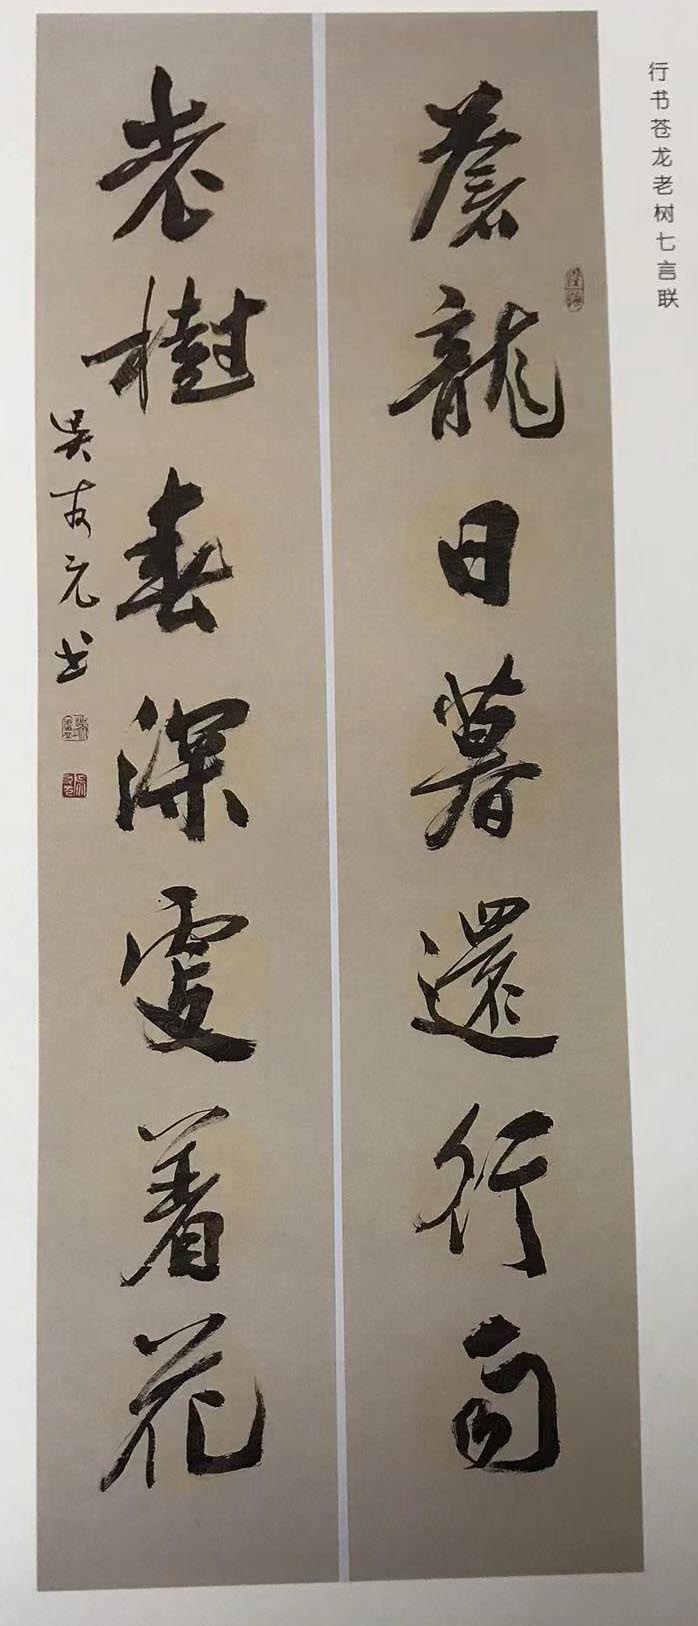 行书苍龙老树七言联
蒼龍日暮還行雨
老樹春深處着花
吴友元书